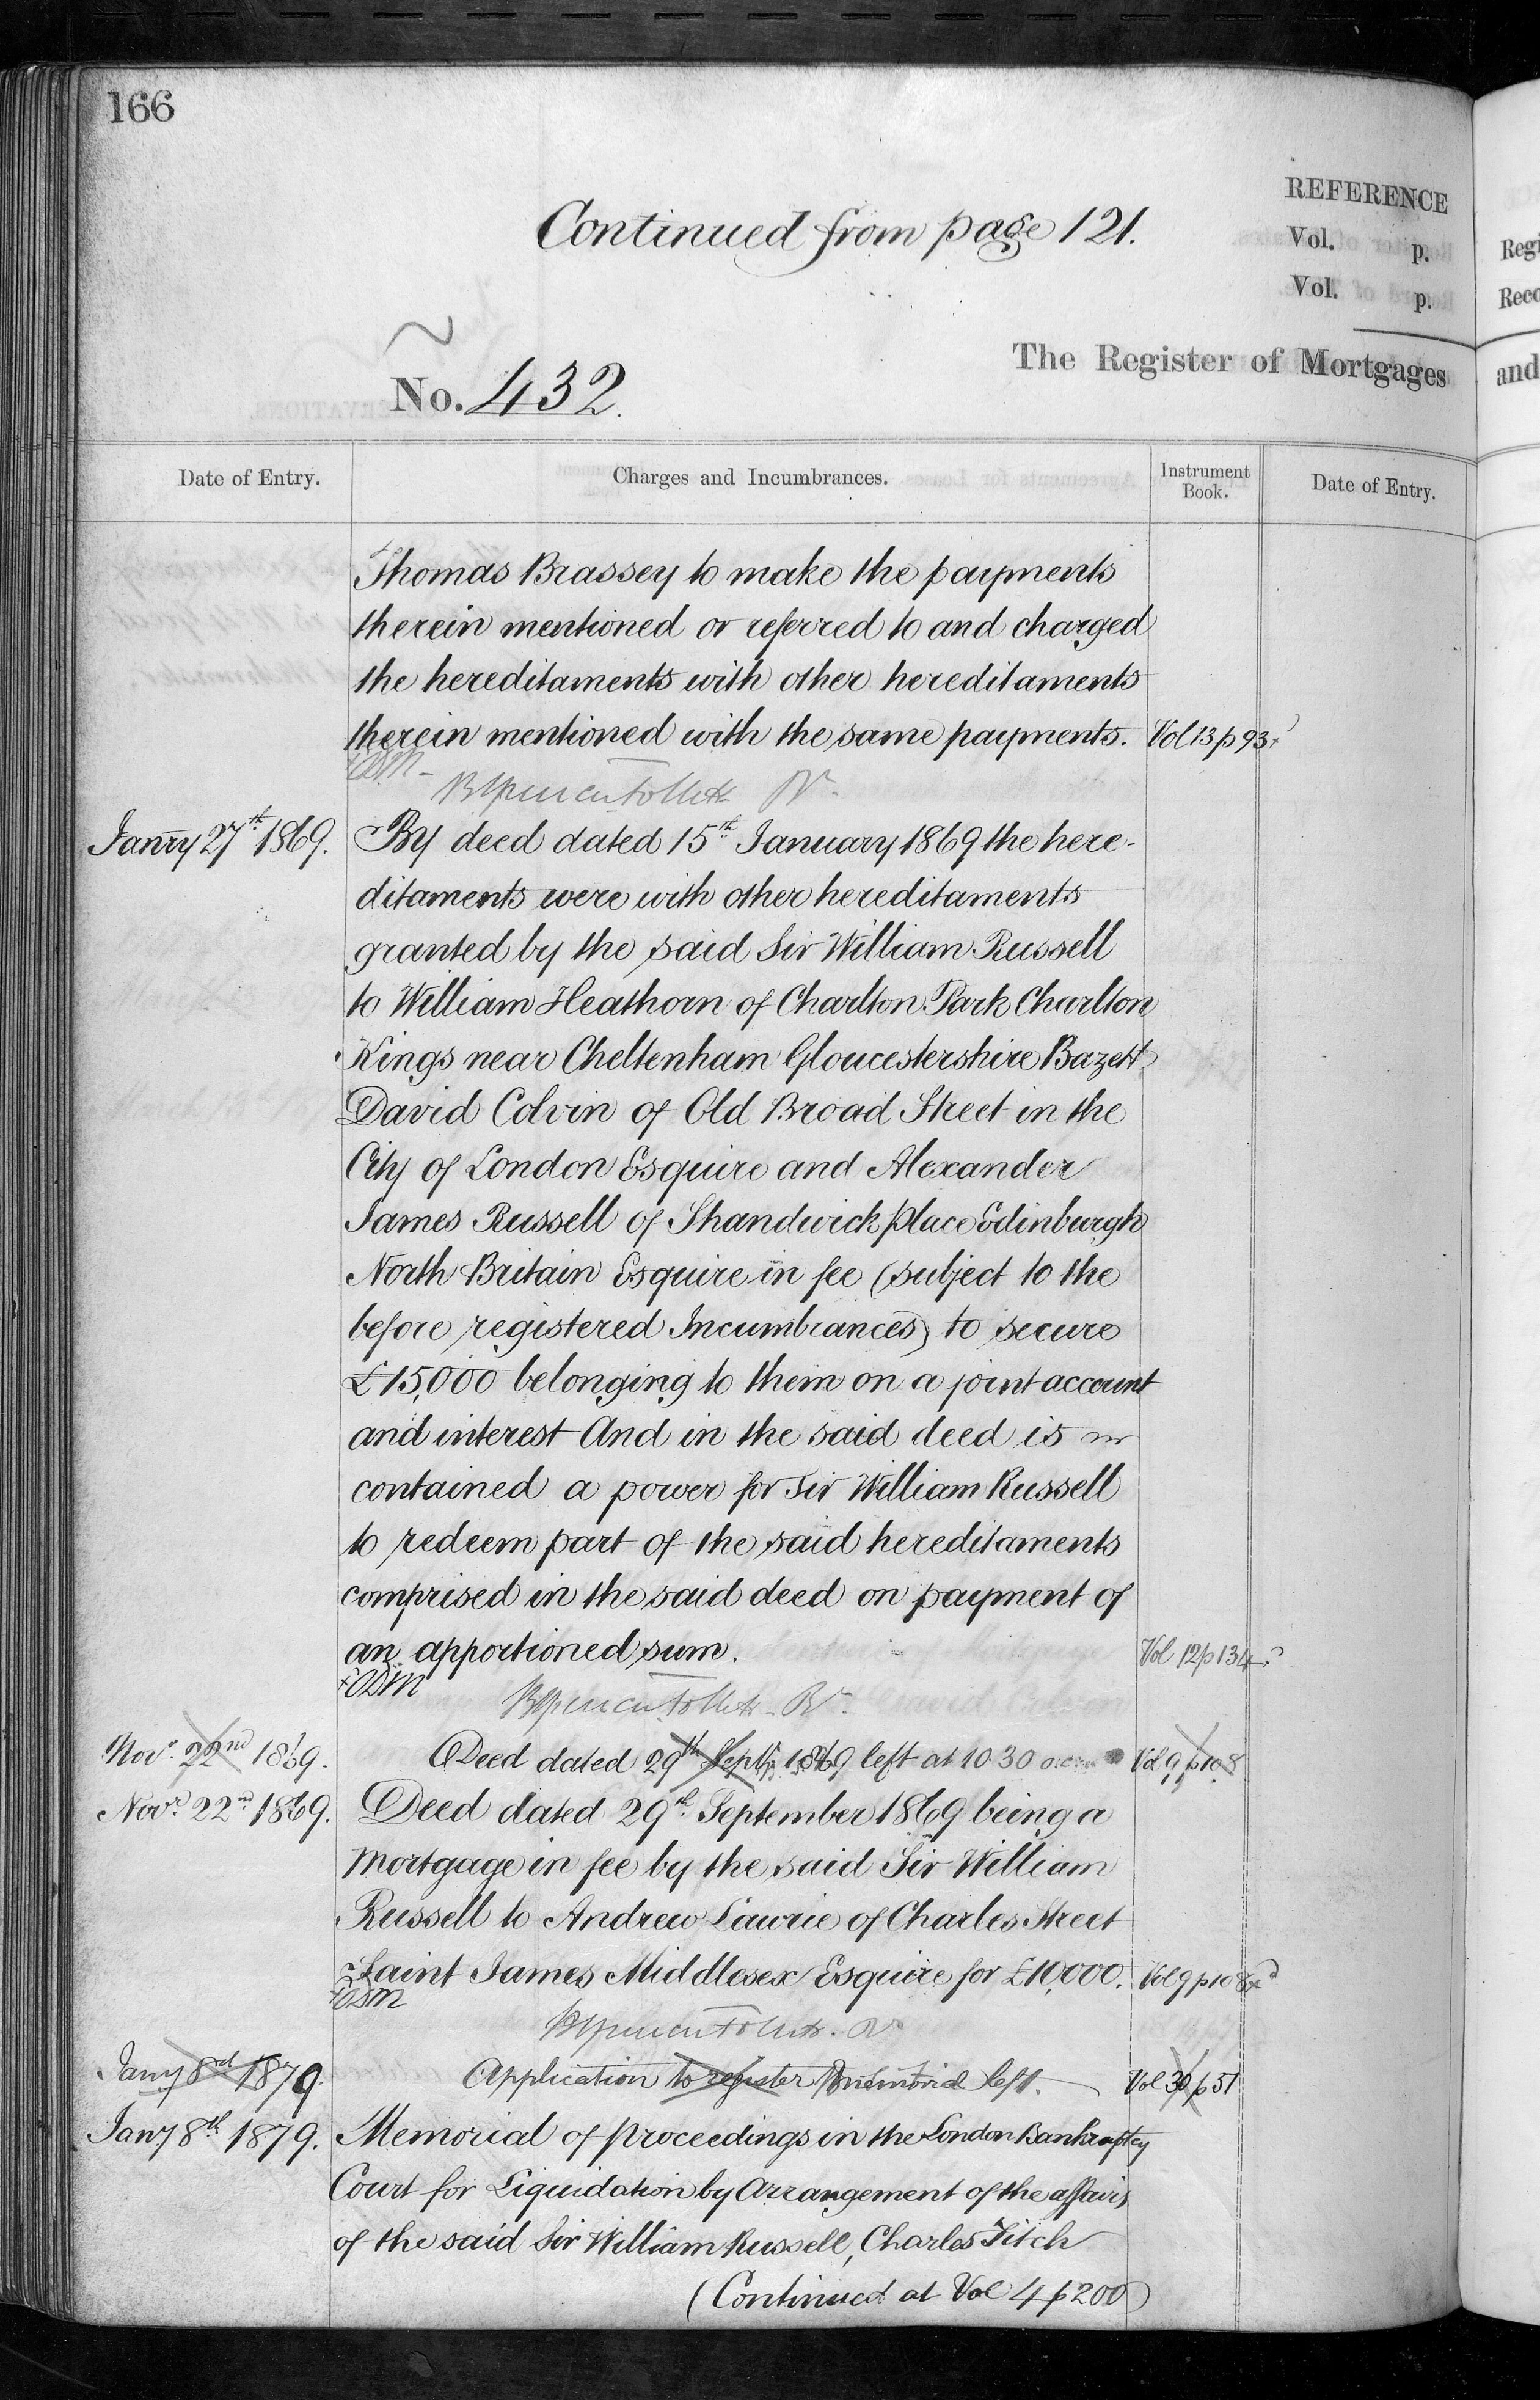 166
Continued from page 121.
REFERENCE
Vol. p.
Vol. p.
No. 432.
The Register of Mortgages
Date of Entry.
Charges and Incumbrances.
Instrument Book.
Date of Entry.
Thomas Brassey to make the payments
therein mentioned or referred to and charged
the hereditaments with other hereditaments
therein mentioned with the same payments. Vol 13 p 93
Janry 27th 1869. By deed dated 15th January 1869 the here-
ditaments were with other hereditaments
granted by the said Sir William Russell
to William Heathorn of Charlton Park Charlton
Kings near Cheltenham Gloucestershire Bazett
David Colvin of Old Broad Street in the
City of London Esquire and Alexander
James Russell of Shandwick place Edinburgh
North Britain Esquire in fee (subject to the
before registered Incumbrances) to secure
£15,000 belonging to them on a joint account
and interest And in the said deed is
contained a power for Sir William Russell
to redeem part of the said hereditaments
comprised in the said deed on payment of
an apportioned sum. Vol 12 p 134
Novr. 22nd 1869. Deed dated 29th Septr 1869 left at 10 30 Vol 9 p 108
Novr. 22nd 1869. Deed dated 29th September 1869 being a
Mortgage in fee by the said Sir William
Russell to Andrew Lawrie of Charles Street
Saint James Middlesex Esquire for £10,000. Vol 9 p 108
Jany 8th 1879. Application to register memorial left. Vol 30 p 51
Jany 8th 1879. Memorial of proceedings in the London Bankruptcy
Court for Liquidation by Arrangement of the affairs
of the said Sir William Russell, Charles Fitch
(Continued at Vol 4 p 200)
Regi
Reco
and